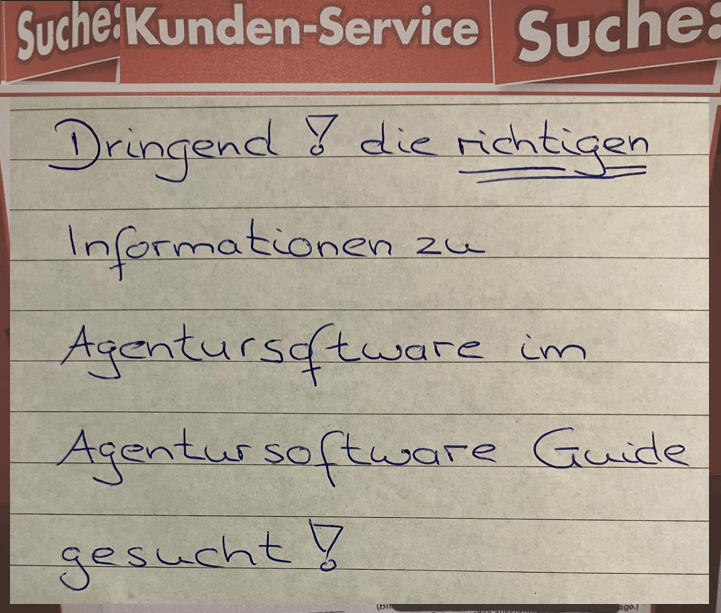 Suche: Kunden-Service Suche:
Dringend! die richtigen
Informationen zu
Agentursoftware im
Agentursoftware Guide
gesucht!